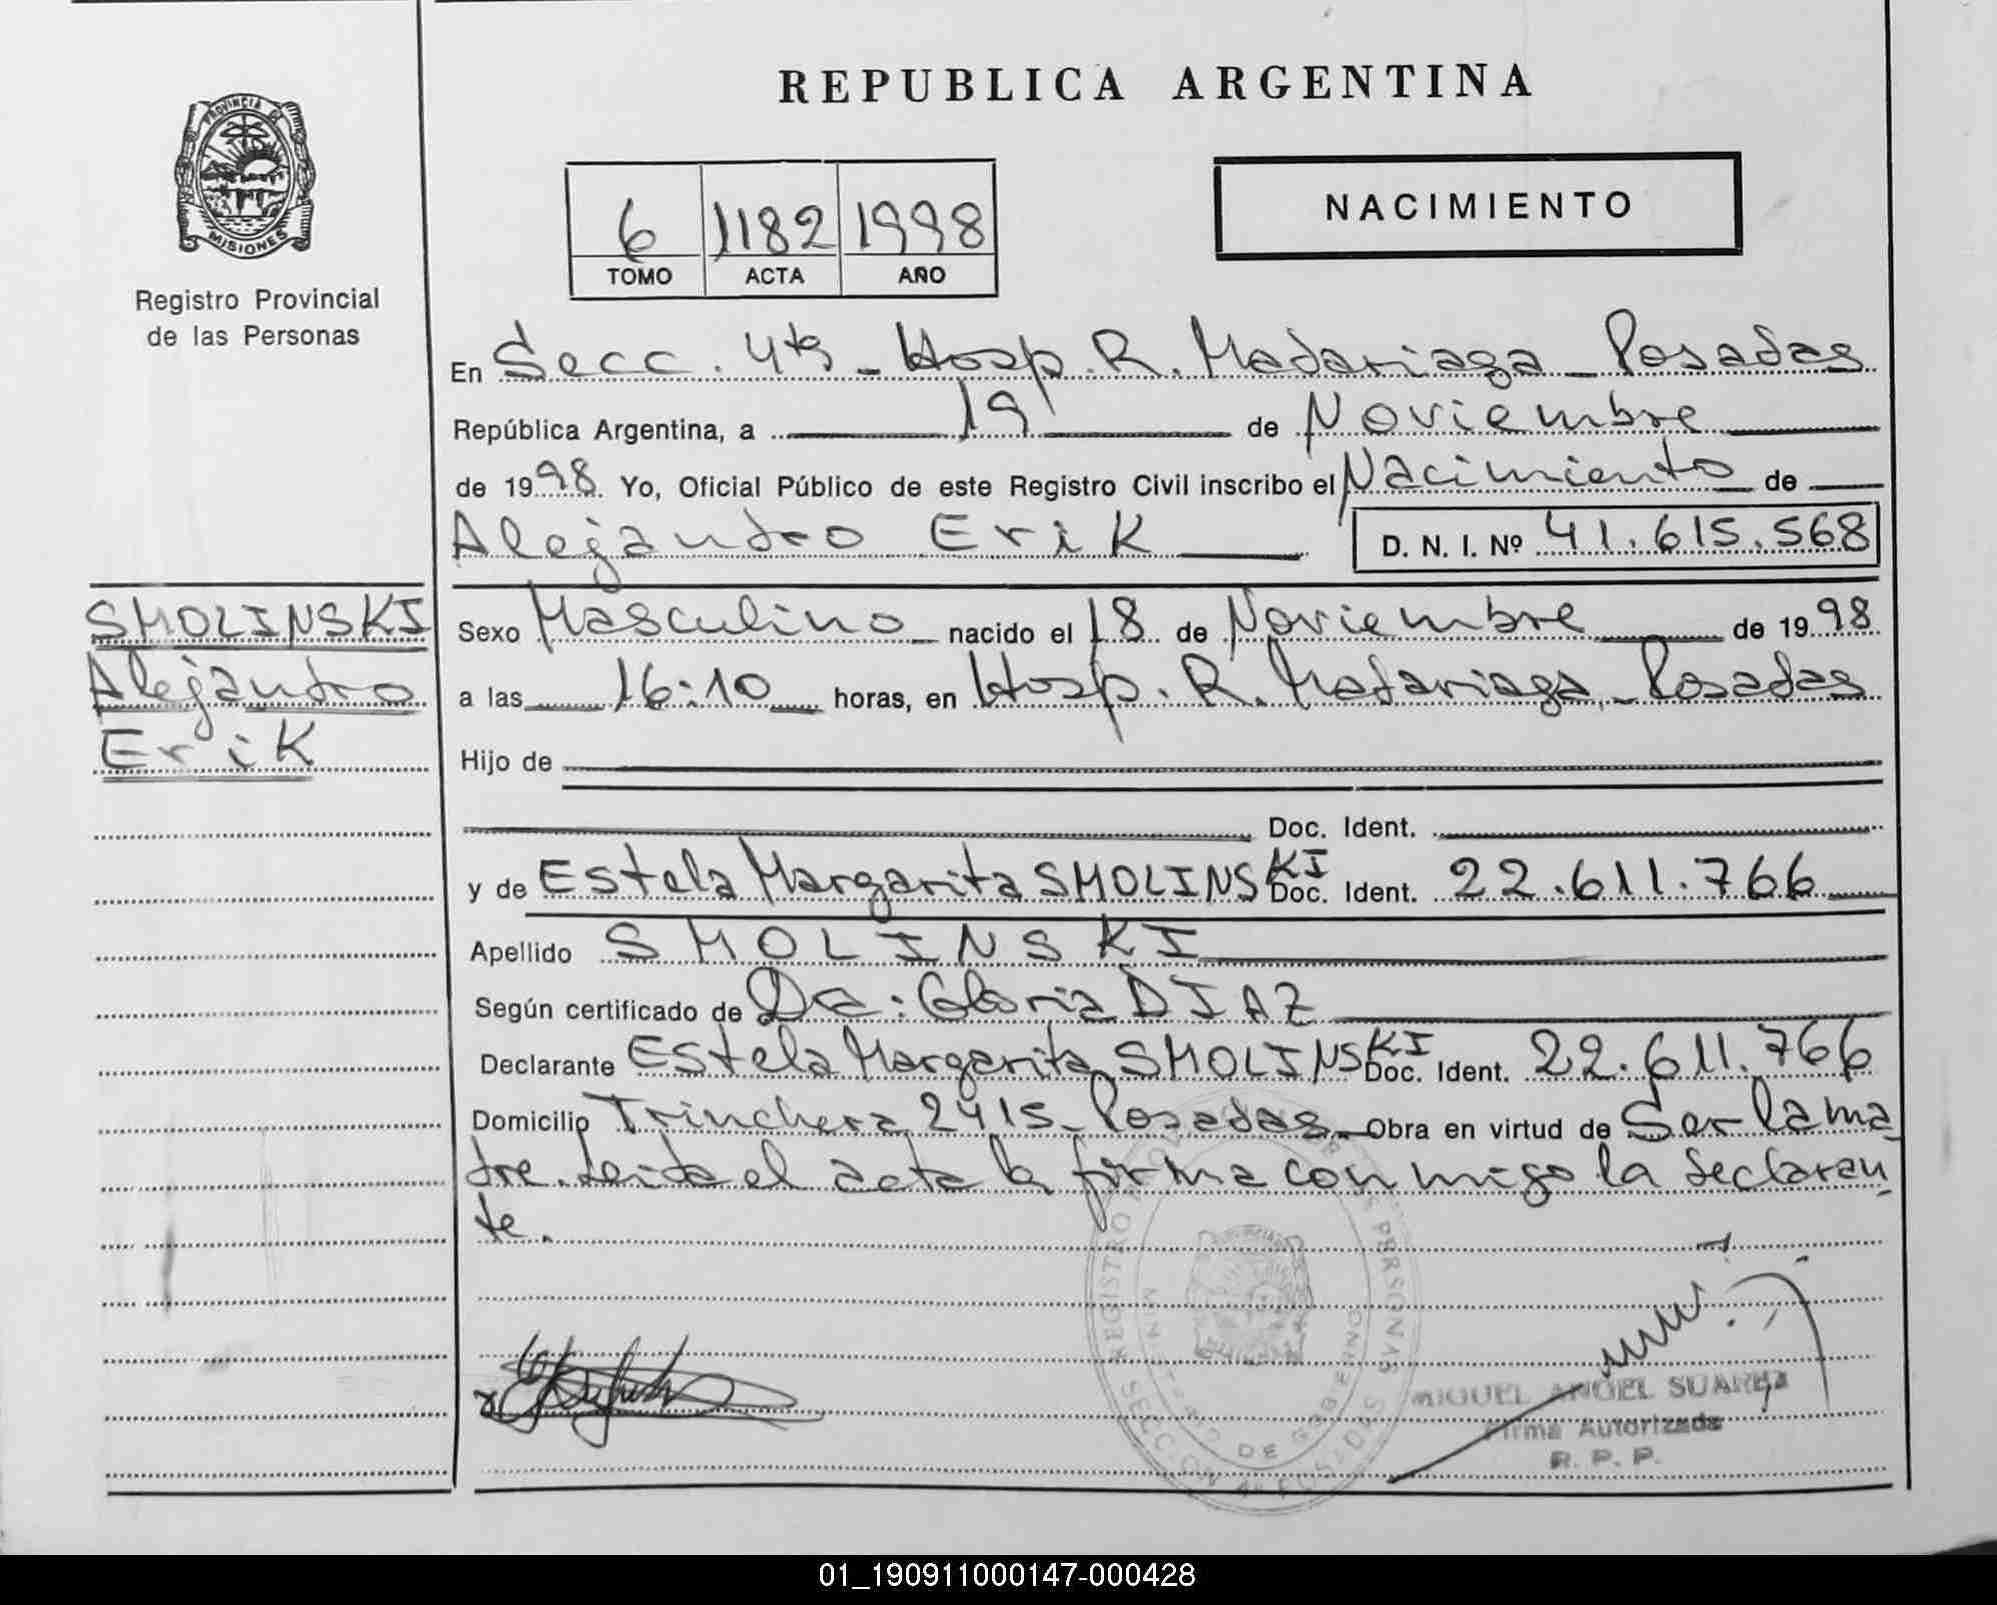 REPUBLICA ARGENTINA
PROVINCIA DE
MISIONES
Registro Provincial
de las Personas
6 1182 1998
TOMO ACTA AÑO
NACIMIENTO
En Secc. 4ta - Hosp. R. Madariaga - Posadas
República Argentina, a 19 de Noviembre
de 1998. Yo, Oficial Público de este Registro Civil inscribo el Nacimiento de
Alejandro Erik D. N. I. Nº 41.615.568
SMOLINSKI
Alejandro
Erik
Sexo Masculino nacido el 18 de Noviembre de 1998
a las 16:10 horas, en Hosp. R. Madariaga - Posadas
Hijo de
Doc. Ident.
y de Estela Margarita SMOLINSKI Doc. Ident. 22.611.766
Apellido SMOLINSKI
Según certificado de Dra: Gloria DIAZ
Declarante Estela Margarita SMOLINSKI Doc. Ident. 22.611.766
Domicilio Trinchera 2415 - Posadas - Obra en virtud de Ser la ma
dre. Leida el acta la firma conmigo la declaran
te.
REGISTRO PERSONAS
MINISTERIO DE GOBIERNO
SECCION 4ª POSADAS
MIGUEL ANGEL SUAREZ
Firma Autorizada
R. P. P.
01_190911000147-000428